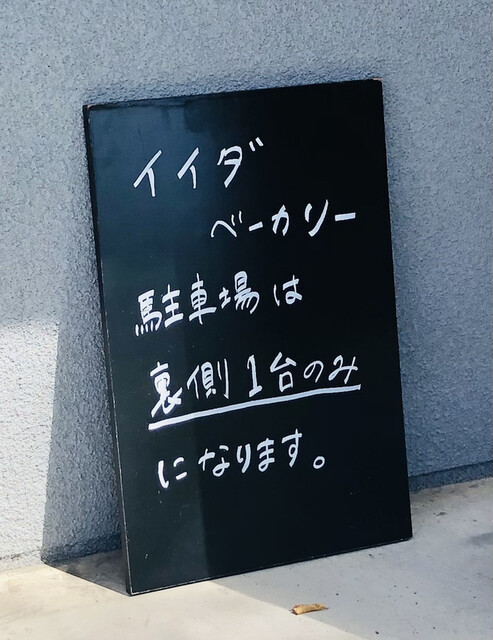 イイダ
ベーカリー
駐車場は
裏側1台のみ
になります。